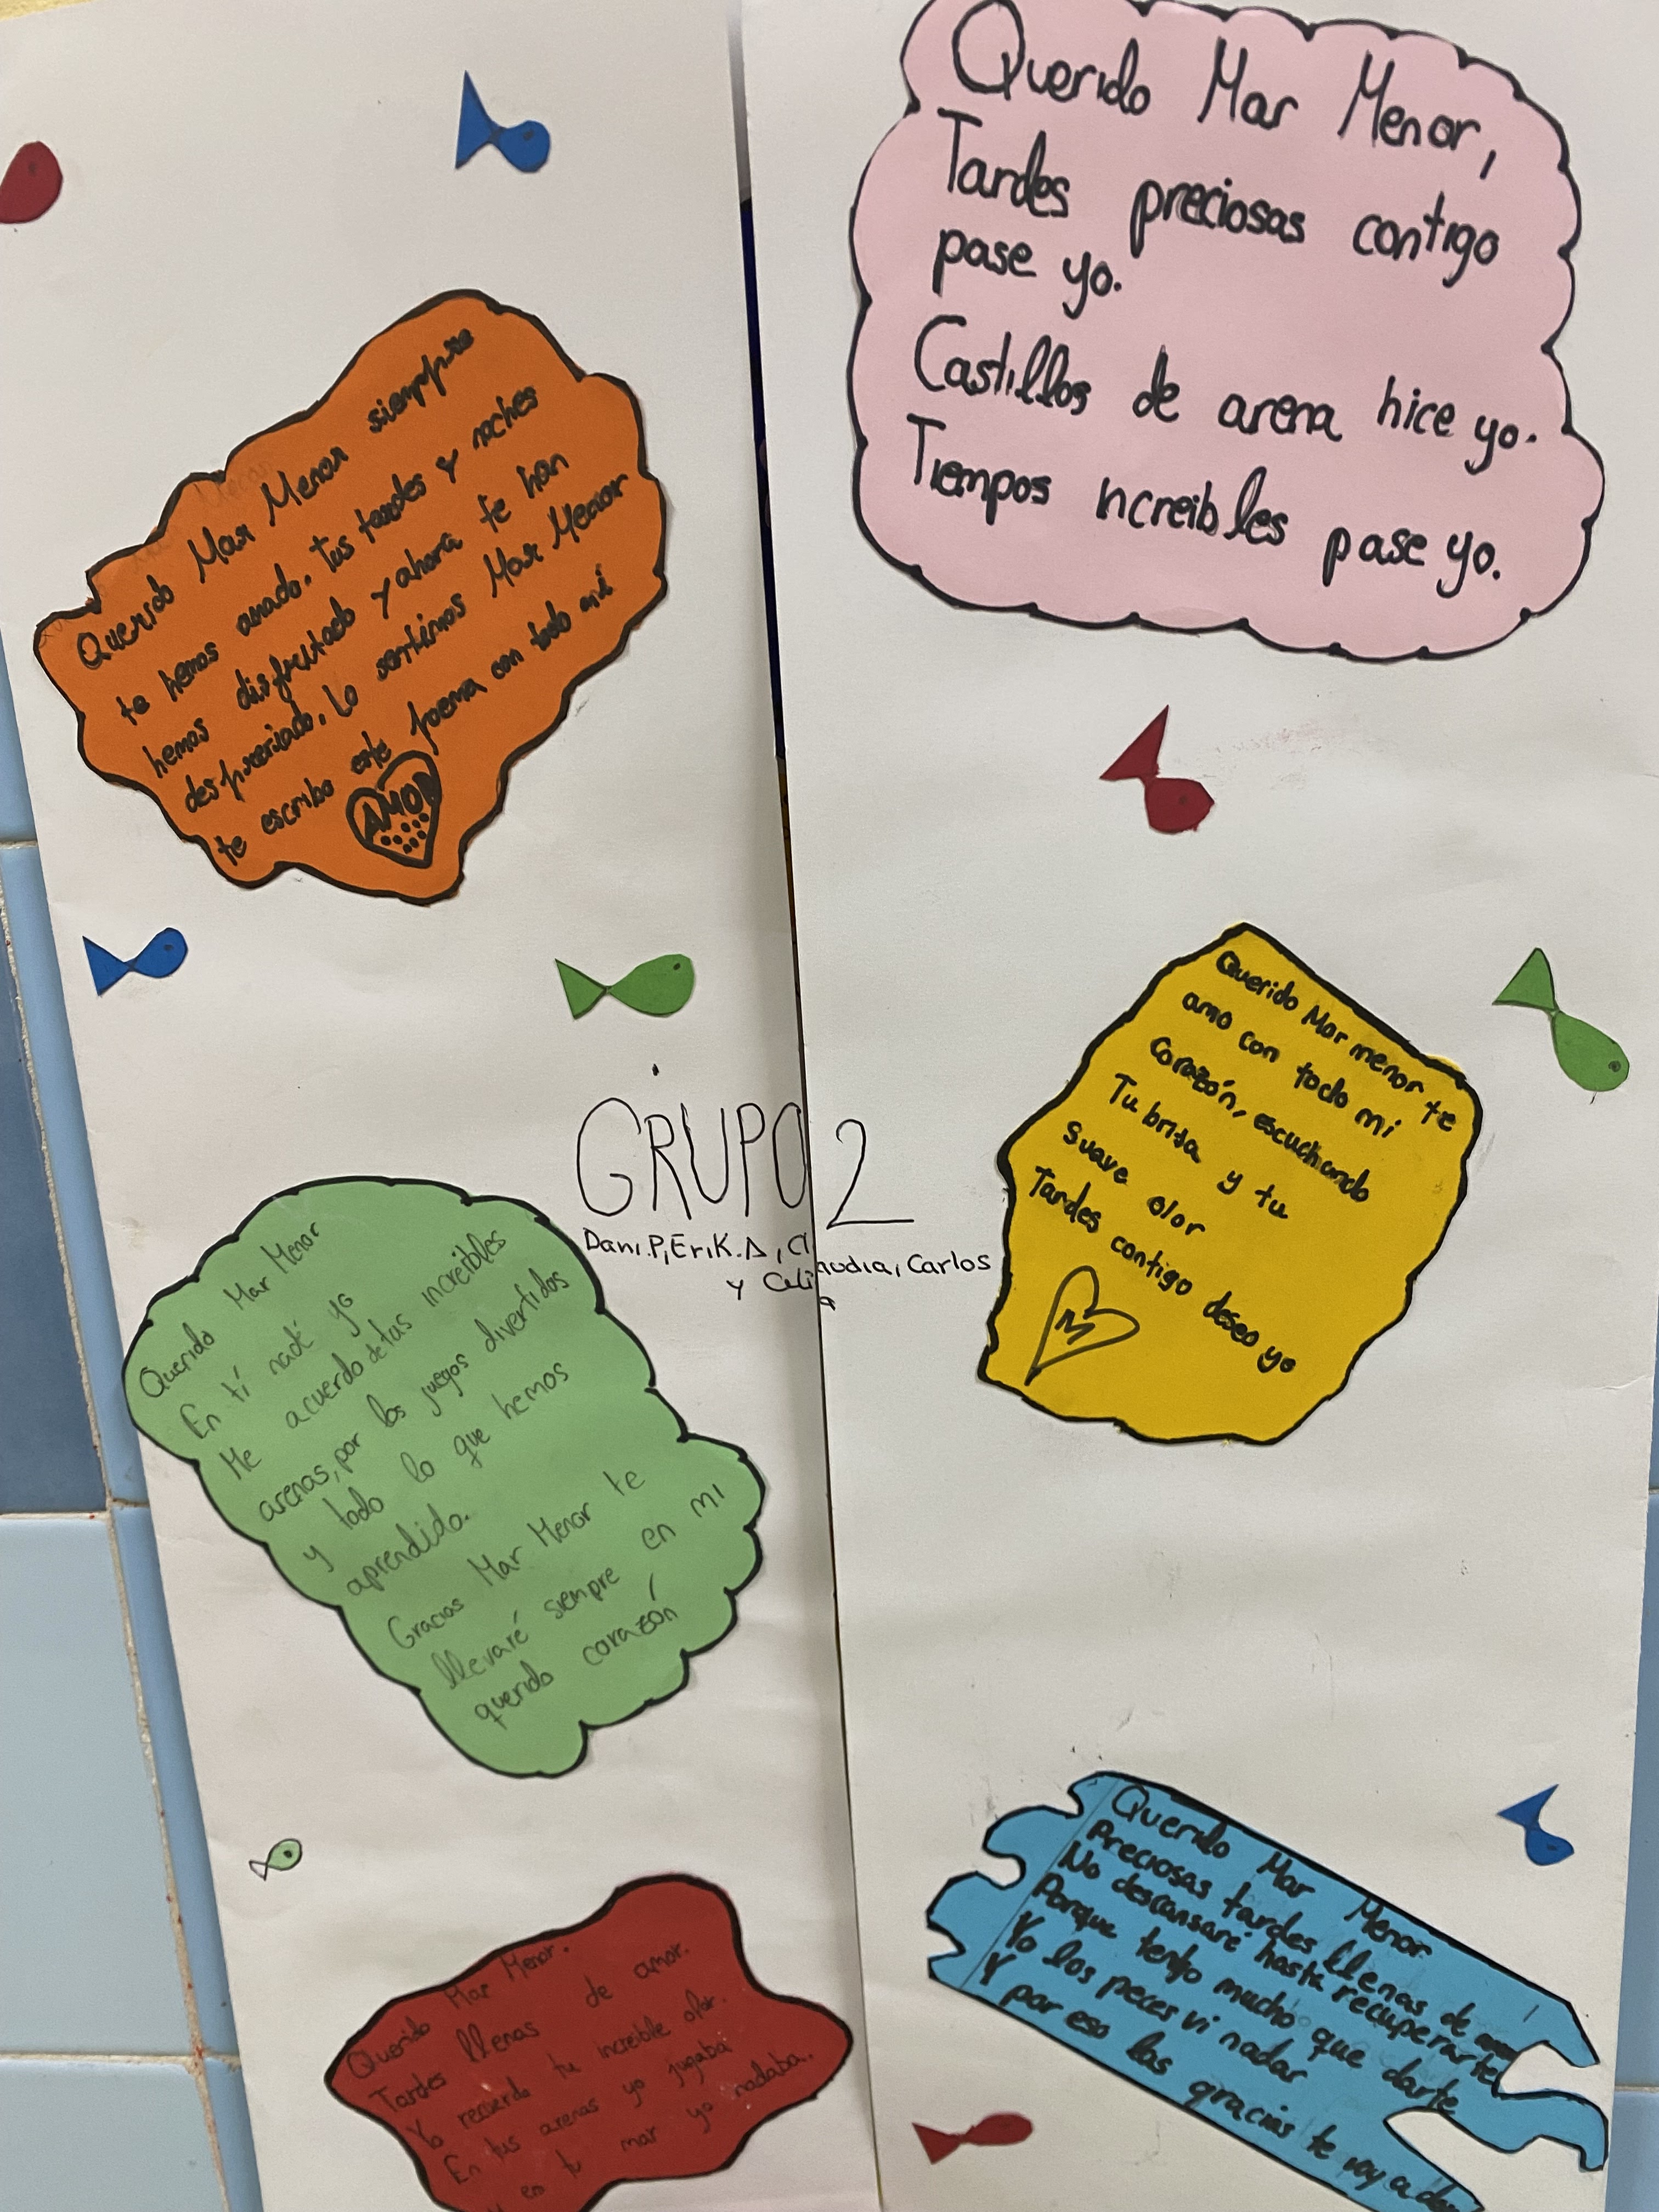 Querido Mar Menor,
Tardes preciosas contigo
pase yo.
Castillos de arena hice yo.
Tiempos ncreibles pase yo.
Querido Mar Menor siempre
te hemos amado. Tus tardes y noches
hemos disfrutado y ahora te han
despreciado. Lo sentimos Mar Menor
te escribo este poema con todo mi
AMOR
Querido Mar menor te
amo con todo mi
Corazón, escuchando
Tu brisa y tu
Suave olor
Tardes contigo deseo yo
M
GRUPO 2
Dani.P, Erik.A, Claudia, Carlos
y Celia
Querido Mar Menor
En tí nadé yo
Me acuerdo de tus increibles
arenas, por los juegos divertidos
y todo lo que hemos
aprendido.
Gracias Mar Menor te
llevaré siempre en mi
querido corazón
Querido Mar Menor
Preciosas tardes llenas de amor
No descansaré hasta recuperarte
Porque tengo mucho que darte
Yo los peces vi nadar
Y por eso las gracias te voy a
Querido Mar Menor.
Tardes llenas de amor.
Yo recuerdo tu increible olor.
En tus arenas yo jugaba
y en tu mar yo nadaba.